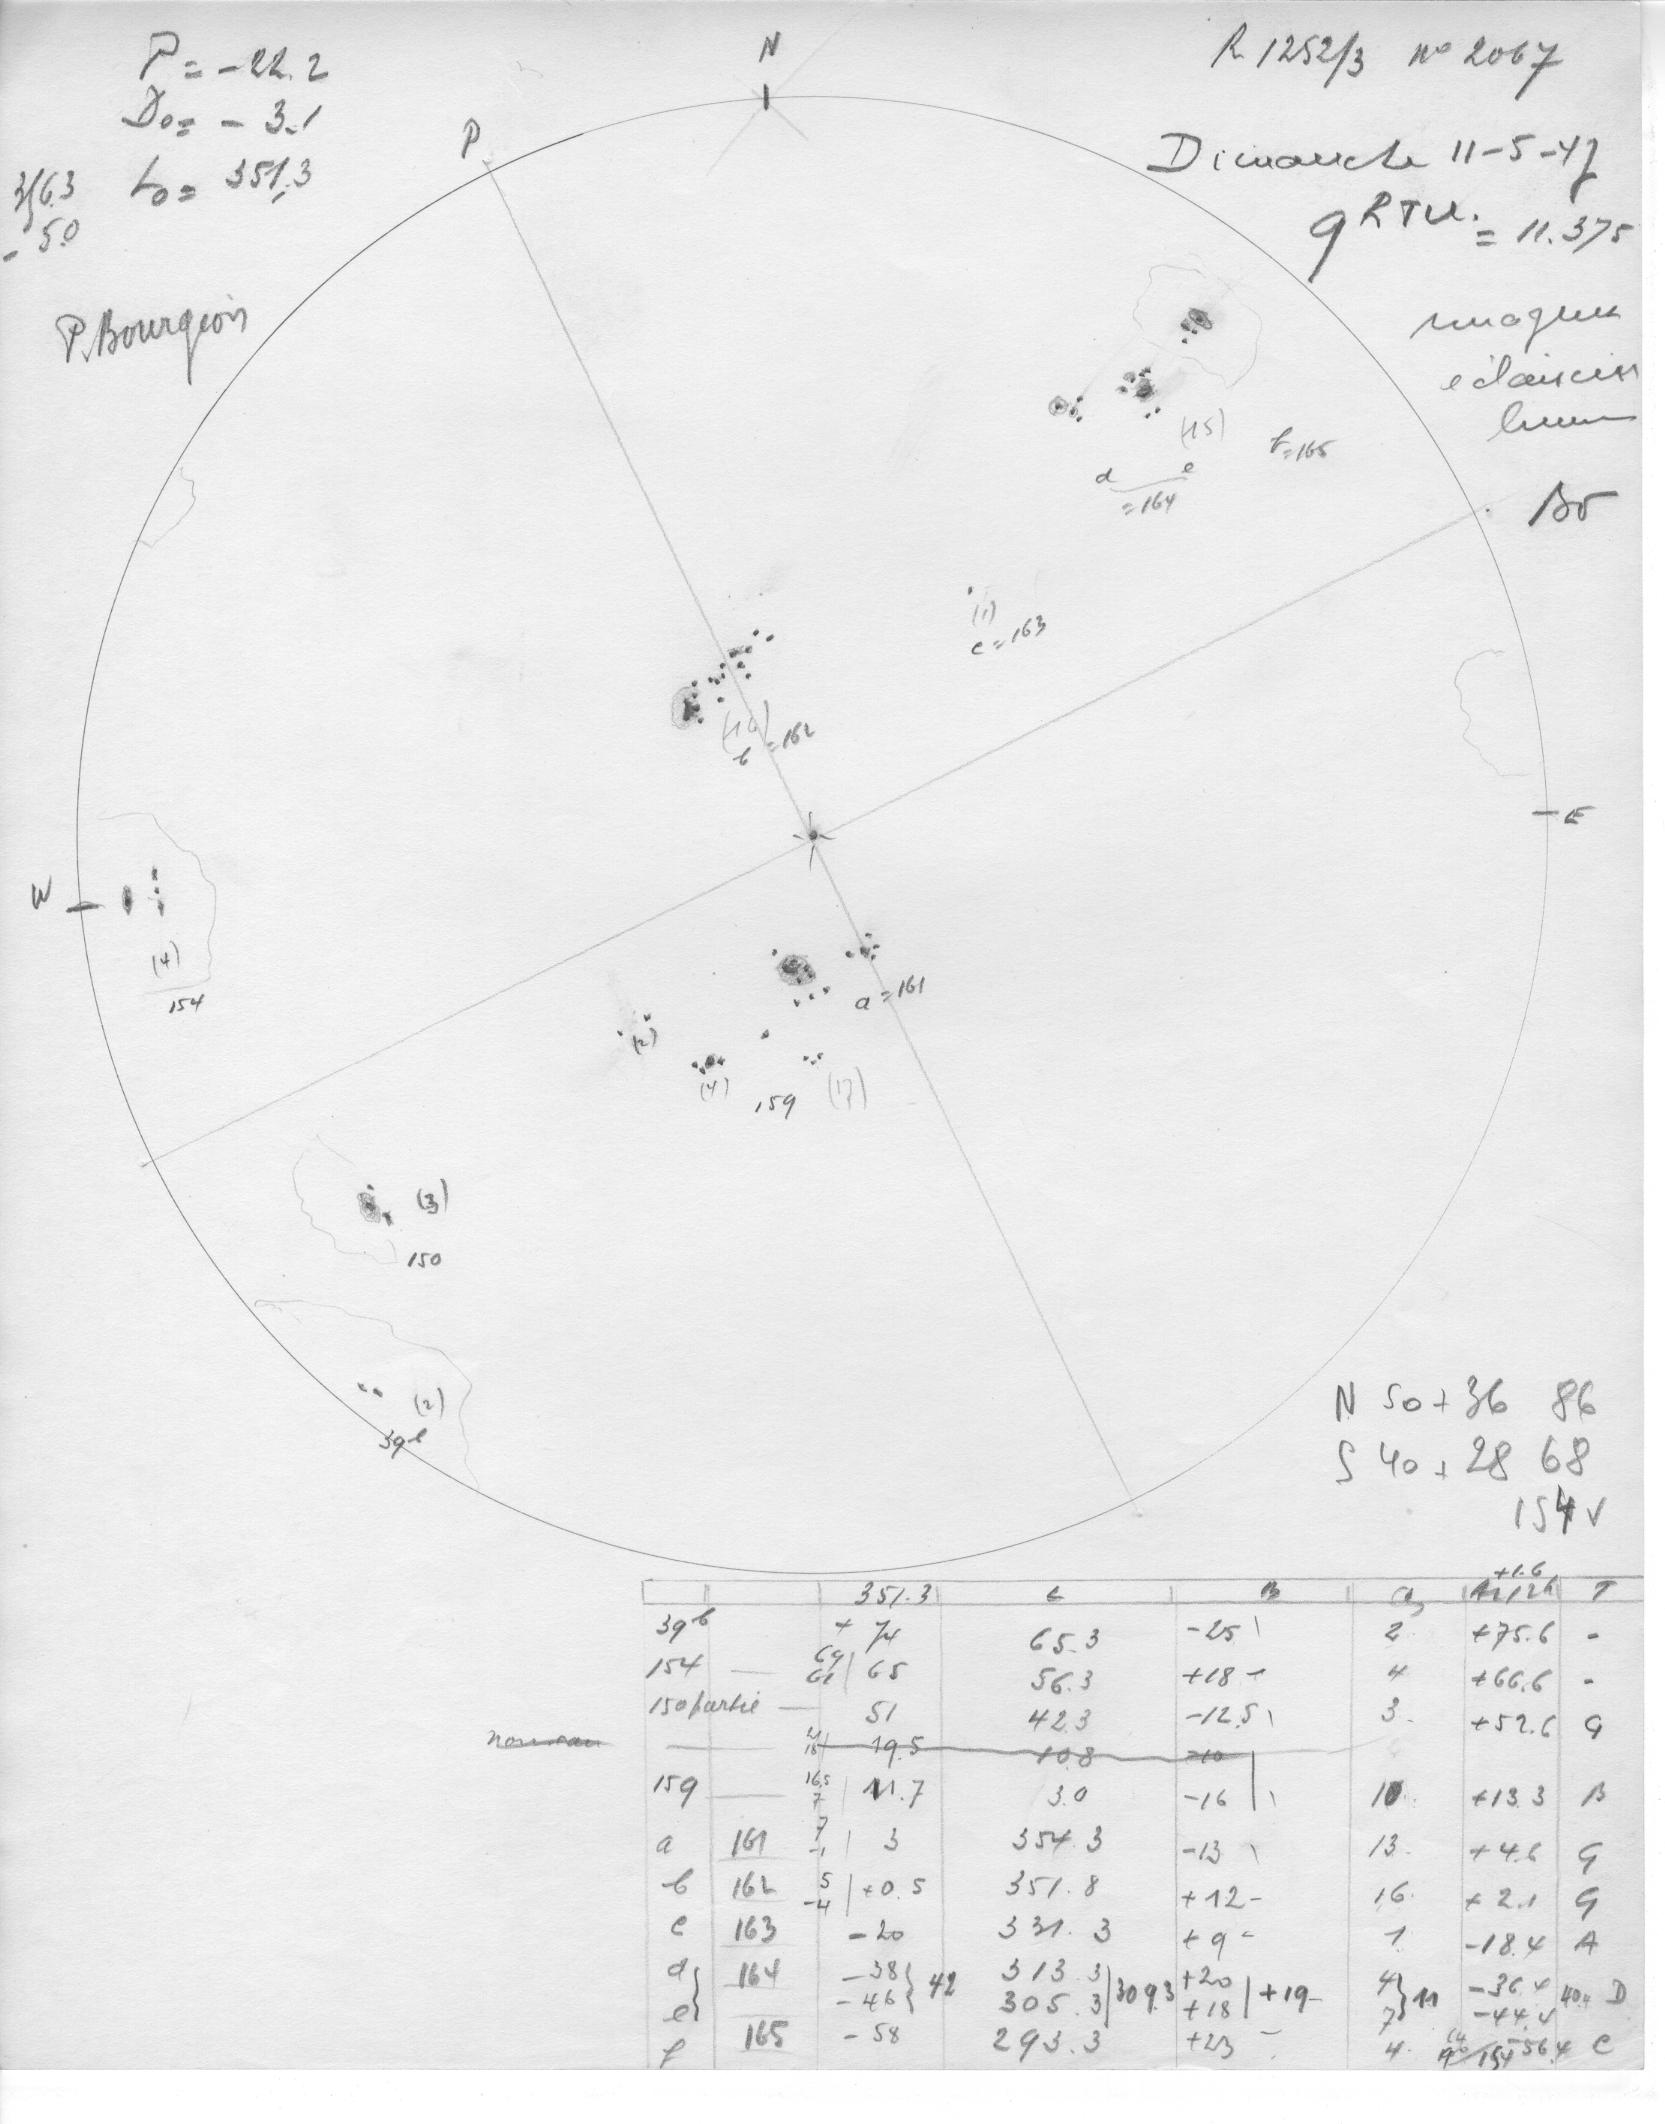 P = -22.2
D₀ = - 3.1
L₀ = 351.3
- 5.0
P. Bourgeois
N
P
R 1252/3 n° 2067
Dimanche 11-5-47
9h TU. = 11.375
nuages
éclaircies
brume
(15)
f=165
d e
=164
(1)
c=163
(16)
b =162
E
W
(4)
154
a=161
(2)
(4)
159
(3)
150
(2)
39b
N 50+36 86
S 40+28 68
154 v
+1.6
351.3 L B T
39b + 74 65.3 -25 2 +75.6 -
154 — 69 61 65 56.3 +18 - 4 +66.6 -
150 partie — 51 42.3 -12.5 3. +52.6 G
nouveau 21 18 19.5 10.8 -10
159 — 16.5 7 11.7 3.0 -16 10. +13.3 B
a 161 7 -1 3 354.3 -13 13. +4.6 G
b 162 5 -4 +0.5 351.8 +12 - 16. +2.1 G
c 163 -20 331.3 +9 - 1 -18.4 A
d 164 -38 42 313.3 309.3 +20 +19 - 4 11 -36.4 40.4 D
e -46 305.3 +18 7 -44.4
f 165 -58 293.3 +23 - 4. 154 -56.4 C